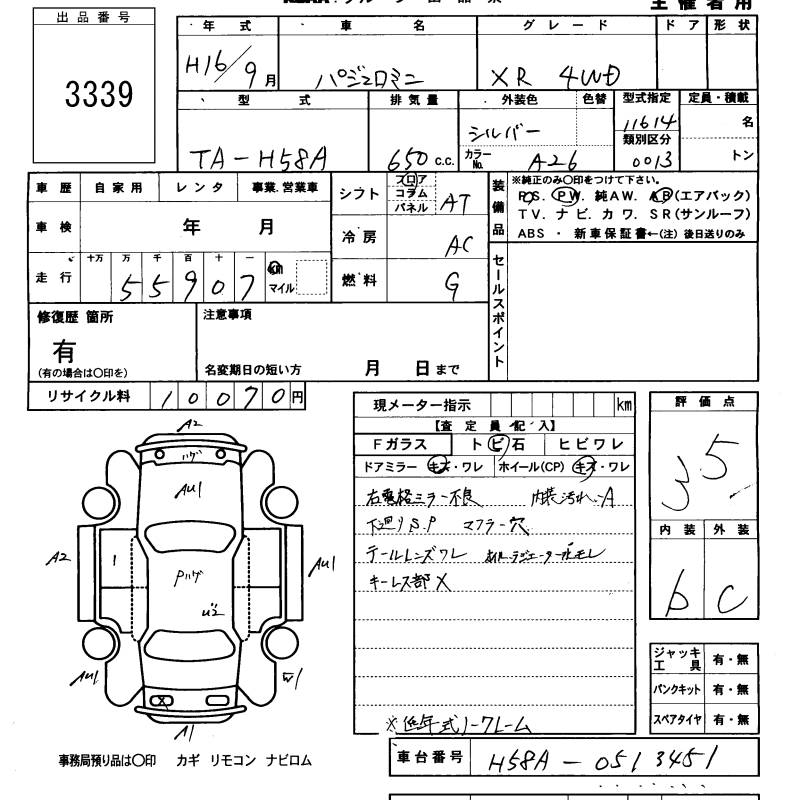 主催者用
出品番号
3339
年式 車名 グレード ドア 形状
H16/9月 パジェロミニ XR 4WD
型式 排気量 外装色 色替 型式指定 定員・積載
シルバー 11614 名
類別区分
TA-H58A 650 c.c. カラーNo. A26 0013 トン
車歴 自家用 レンタ 事業.営業車
シフト フロア コラム パネル AT
装備品
※純正のみ○印をつけて下さい。
P.S. P.W. 純AW. A.B(エアバック)
TV. ナビ. カワ. SR(サンルーフ)
ABS ・ 新車保証書←(注) 後日送りのみ
車検 年 月
冷房 AC
走行 十万 万 千 百 十 一
55907 km マイル
燃料 G
セールスポイント
修復歴 箇所
有
(有の場合は○印を)
注意事項
名変期日の短い方 月 日まで
リサイクル料 10070円
現メーター指示 km
【査定員記入】
Fガラス トビ石 ヒビワレ
ドアミラー キズ・ワレ ホイール(CP) キズ・ワレ
右電格ミラー不良 内装汚れ-A
下廻りS.P マフラー穴
テールレンズワレ ラジエーター水モレ
キーレス部X
※低年式ノークレーム
評価点
3.5
内装 外装
b C
ジャッキ 工具 有・無
パンクキット 有・無
スペアタイヤ 有・無
A2
ハゲ
AU1
A2
1
AU1
Pハゲ
U2
AU1
W1
X
A1
事務局預り品は○印 カギ リモコン ナビロム
車台番号 H58A-0513451